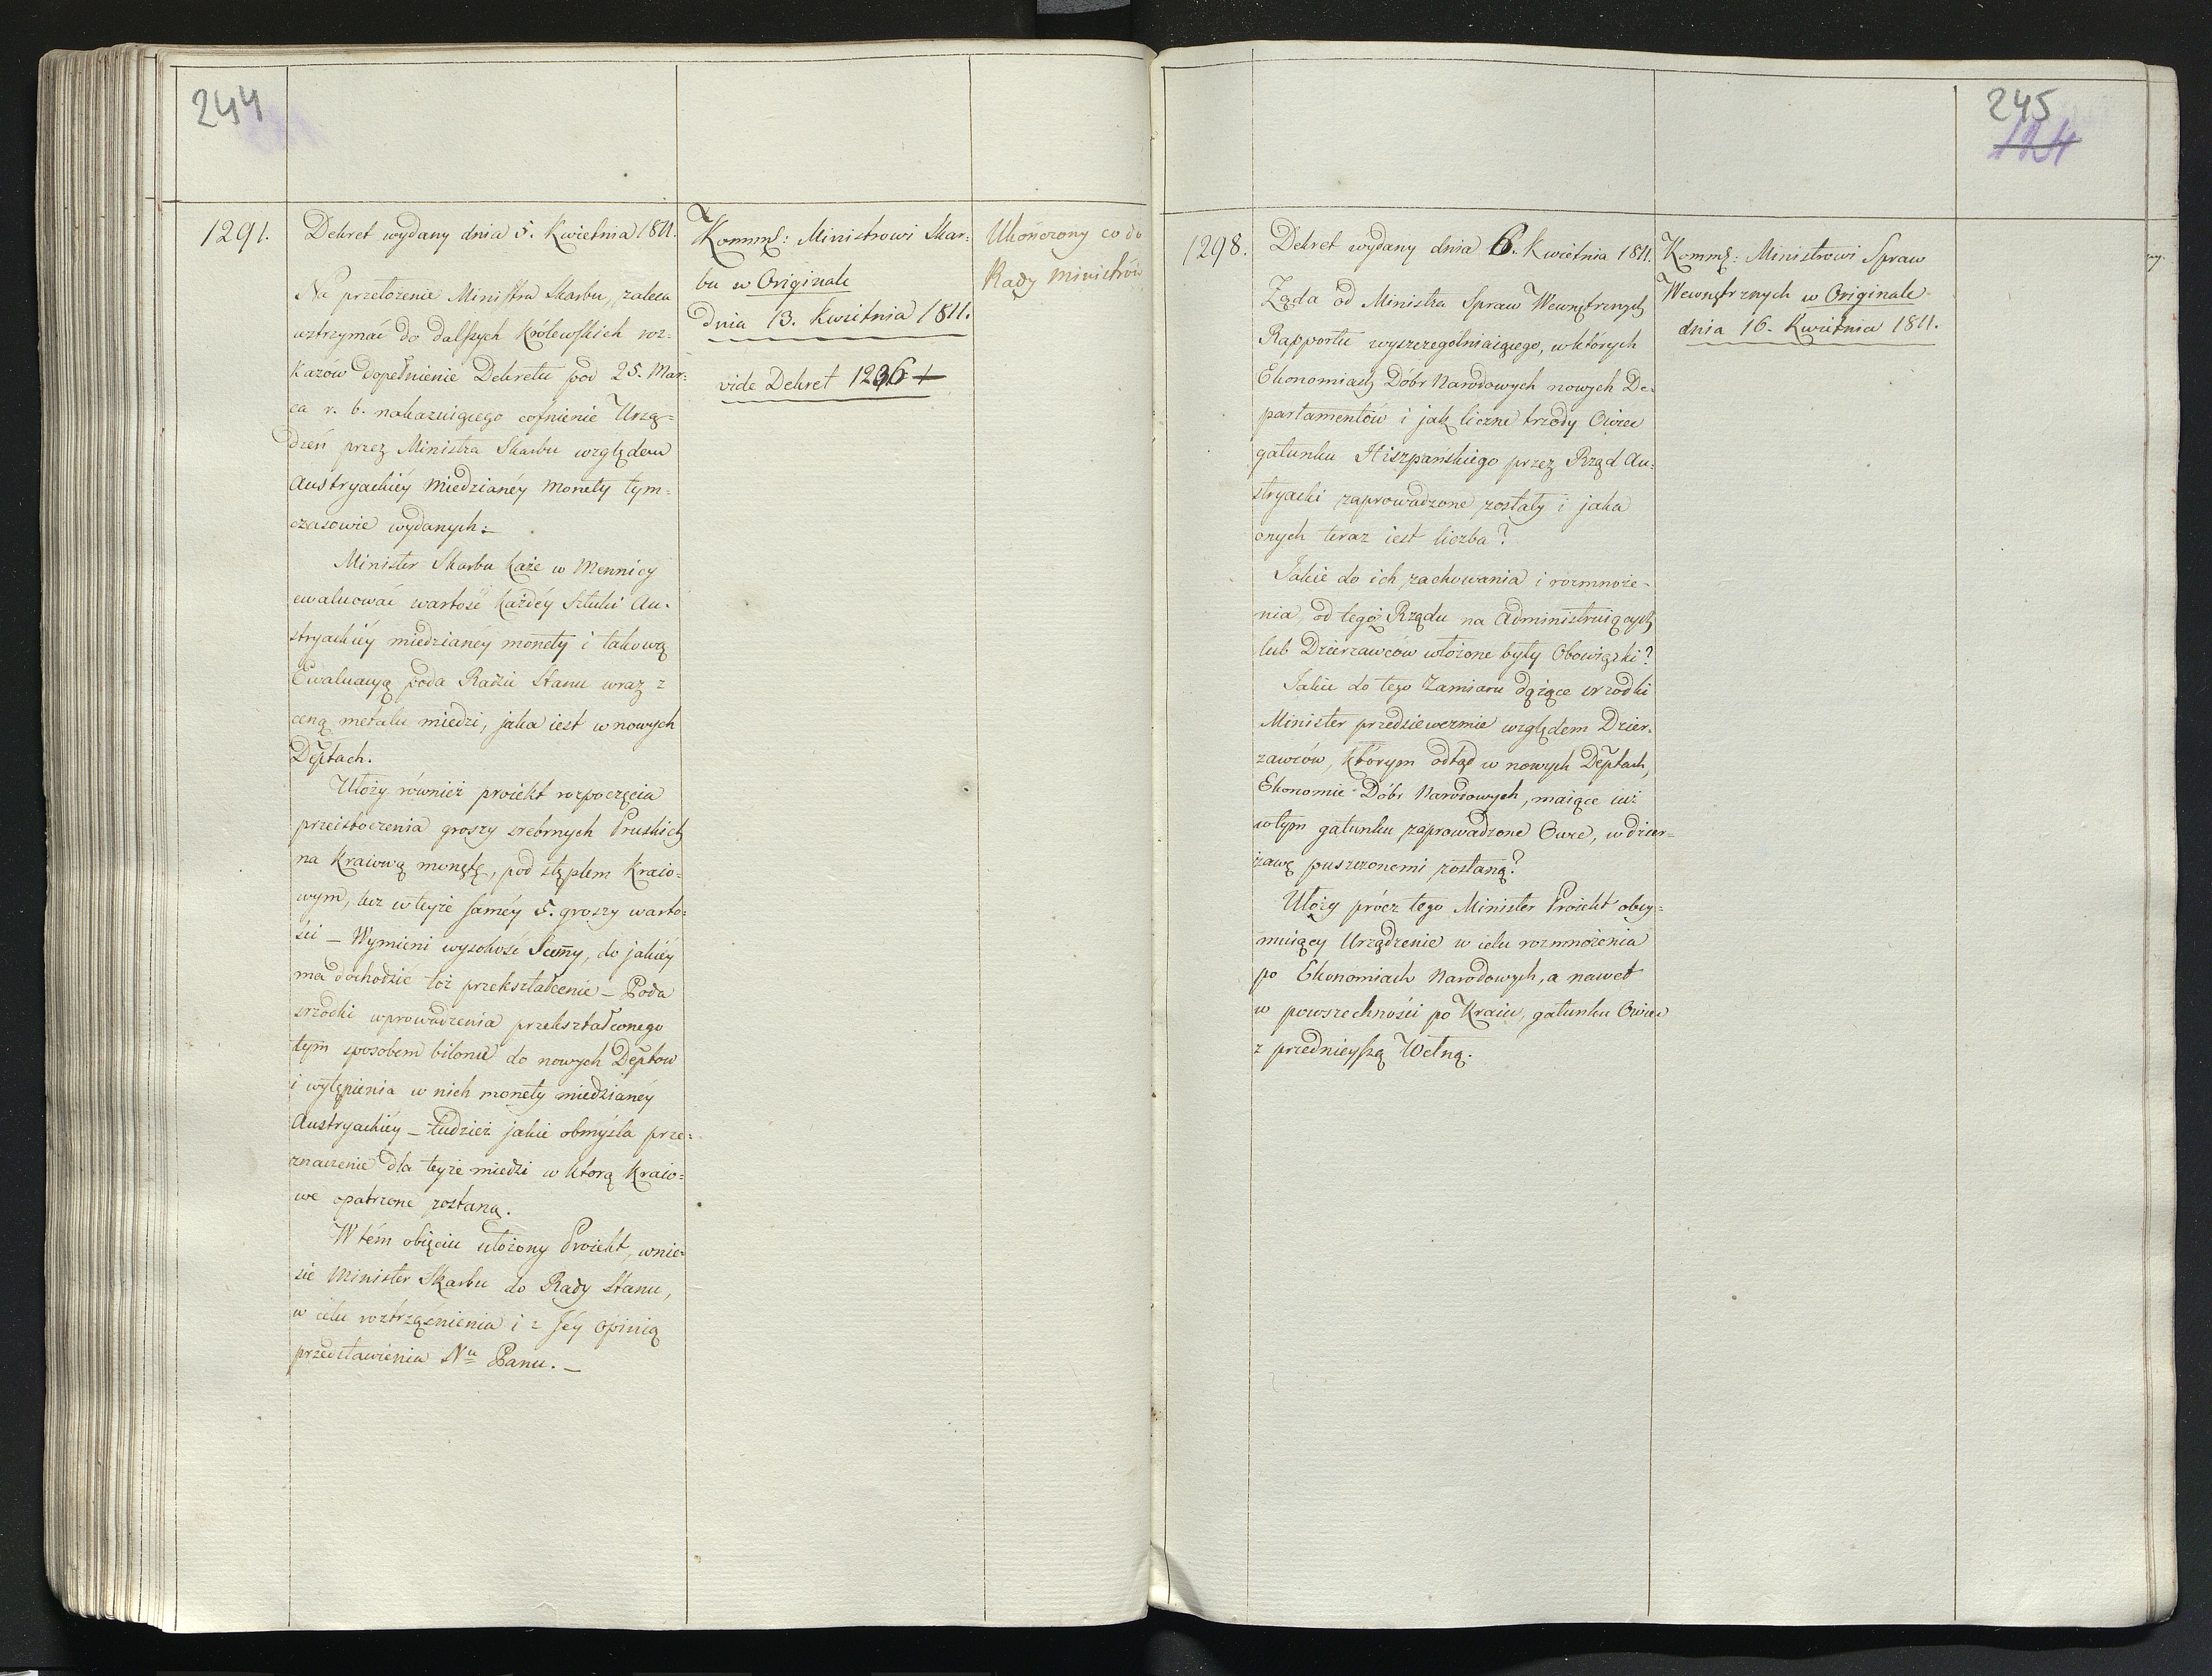 244
1291.
Dekret wydany dnia 5. Kwietnia 1811.
Na przełożenie Ministra Skarbu, zaleca
wstrzymać do dalszych Królewskich roz=
kazów dopełnienie Dekretu pod 25. Mar=
ca r. b. nakazuiącego cofnienie Urzą=
dzeń przez Ministra Skarbu względem
Austryackiéy Miedzianéy Monety tym=
czasowie wydanych._
Minister Skarbu każe w Mennicy
ewaluować wartość każdéy Sztuki Au=
stryackiéy miedzianéy monety i takową
Ewaluacyą poda Radzie Stanu wraz z
ceną metalu miedzi, jaka iest w nowych
Deptach.
Ułoży również proiekt rozpoczęcia
przeistoczenia groszy srebrnych Pruskich
na Kraiową monetę, pod stęplem Kraio=
wym, lecz w teyże saméy 5. groszy warto=
ści _ Wymieni wysokość Summy, do jakiéy
ma dochodzić toż przekształcenie _ Poda
srzodki wprowadzenia przekształconego
tym sposobem bilonu do nowych Deptow
i wytępienia w nich monety miedzianéy
Austryackiéy _ tudzież jakie obmyśla prze=
znaczenie dla teyże miedzi w ktorą Kraio=
we opatrzone zostaną.
W tém obięciu ułożony Proiekt, wnie=
sie Minister Skarbu do Rady Stanu,
w celu roztrząśnienia i z Jéy opinią
przedstawienia Nu Panu._
Kommk: Ministrowi Skar=
bu w Originale
dnia 13. Kwietnia 1811.
vide Dekret 1236 +
Ukończony co do
Rady Ministrów
245
124
1298.
Dekret wydany dnia 6. Kwietnia 1811.
Żąda od Ministra Spraw Wewnętrznych
Rapportu wyszczególniaiącego, w których
Ekonomiach Dóbr Narodowych nowych De=
partamentów i jak liczne trzody Owiec
gatunku Hiszpańskiego przez Rząd Au=
stryacki zaprowadzone zostały i jaka
onych teraz iest liczba?
Jakie do ich zachowania i rozmnoże=
nia, od tegoż Rządu na Administruiących
lub Dzierzawców włożone były Obowiązki?
Jakie do tego Zamiaru dążące srzodki
Minister przedsieweźmie względem Dzier=
zawców, którym odtąd w nowych Deptach,
Ekonomie Dóbr Narodowych, maiące iuż
w tym gatunku zaprowadzone Owce, w dzier=
żawę puszczonemi zostaną?
Ułoży prócz tego Minister Proiekt obey=
muiący Urządzenie w celu rozmnożenia
po Ekonomiach Narodowych, a nawet
w powszechności po Kraiu, gatunku Owiec
z przednieyszą Wełną.
Kommk: Ministrowi Spraw
Wewnętrznych w Originale
dnia 16. Kwietnia 1811.